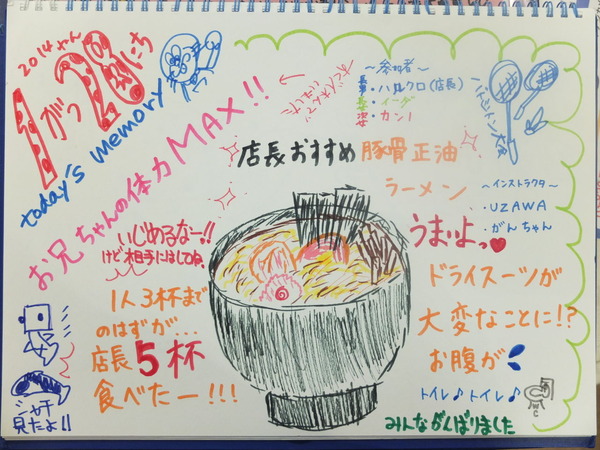 2014ねん
1がつ28にち
today's memory
お兄ちゃんの体力MAX!!
〜参加者〜
・ハルクロ(店長)
・イーダ
・カン1
バドミントン大会
店長おすすめ豚骨正油
ラーメン
うまいよっ♥
〜インストラクター〜
・UZAWA
・がんちゃん
いじめるなー!!
けど相手にはしてね
1人3杯まで
のはずが…
店長5杯
食べたー!!!
ドライスーツが
大変なことに!?
お腹が
トイレ♪トイレ♪
WC
シャチ
見たよ!!
みんながんばりました